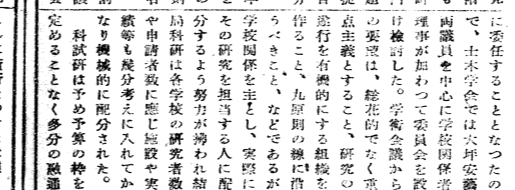 に委任することとなつたの
で、土木学会では大坪安藝
両議員を中心に学校関係者
理事が加わつて委員会を設
け検討した。学術会議から
の要望は、総花的でなく重
点主義とすること、研究の
遂行を有機的にする組織を
作ること、九原則の線に沿
うべきこと、などであるが
学校関係を主とし、実際に
その研究を担当する人に配
分するよう努力が拂われ結
局科研は各学校の研究者数
や申請者数に應じ施設や実
績等も幾分考えに入れてか
なり機械的に配分された。
科試研は予め予算の枠を
定めることなく多分の融通